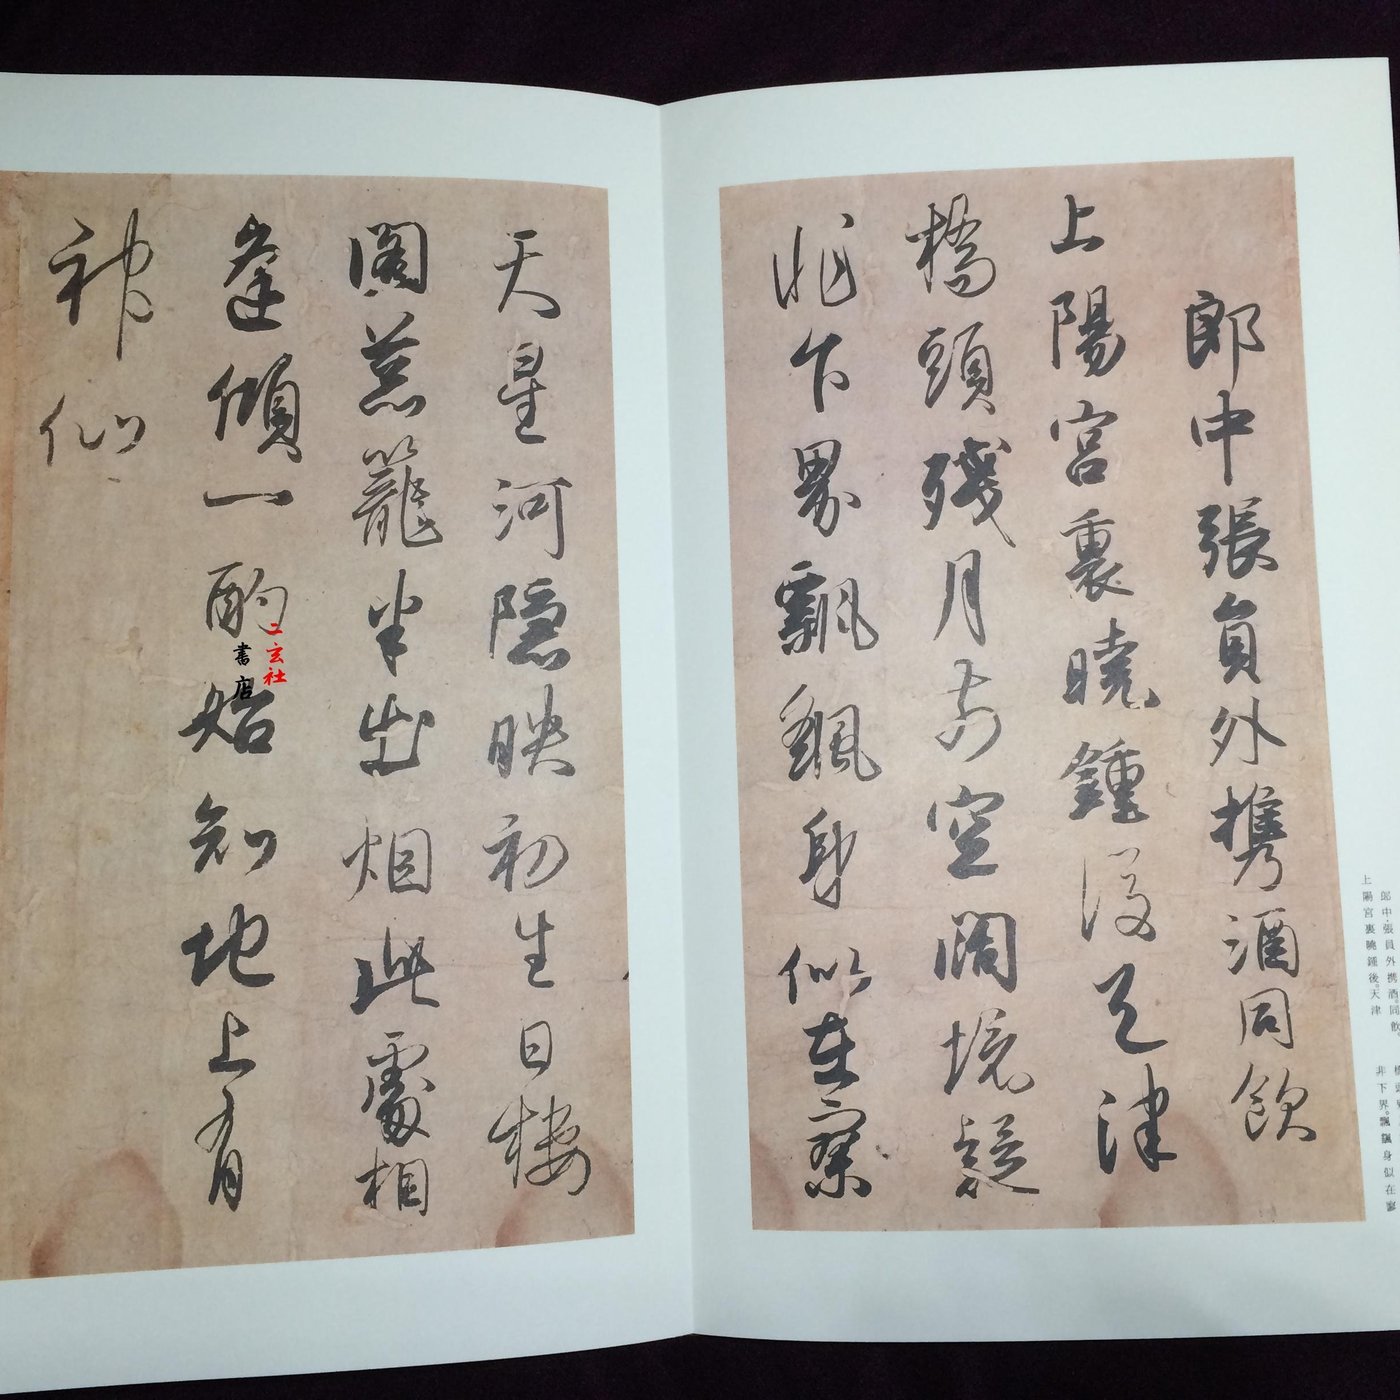 郎中張員外携酒同飲
上陽宮裏曉鍾後天津
橋頭殘月前空闊境疑
非下界飄飖身似在寥
天星河隱映初生日樓
閣葱籠半出烟此處相
逢傾一酌始知地上有
神仙
二玄社
書店
郎中張員外携酒。同飲。
上陽宮裏曉鍾後。天津
非下界。飄飖身似在寥